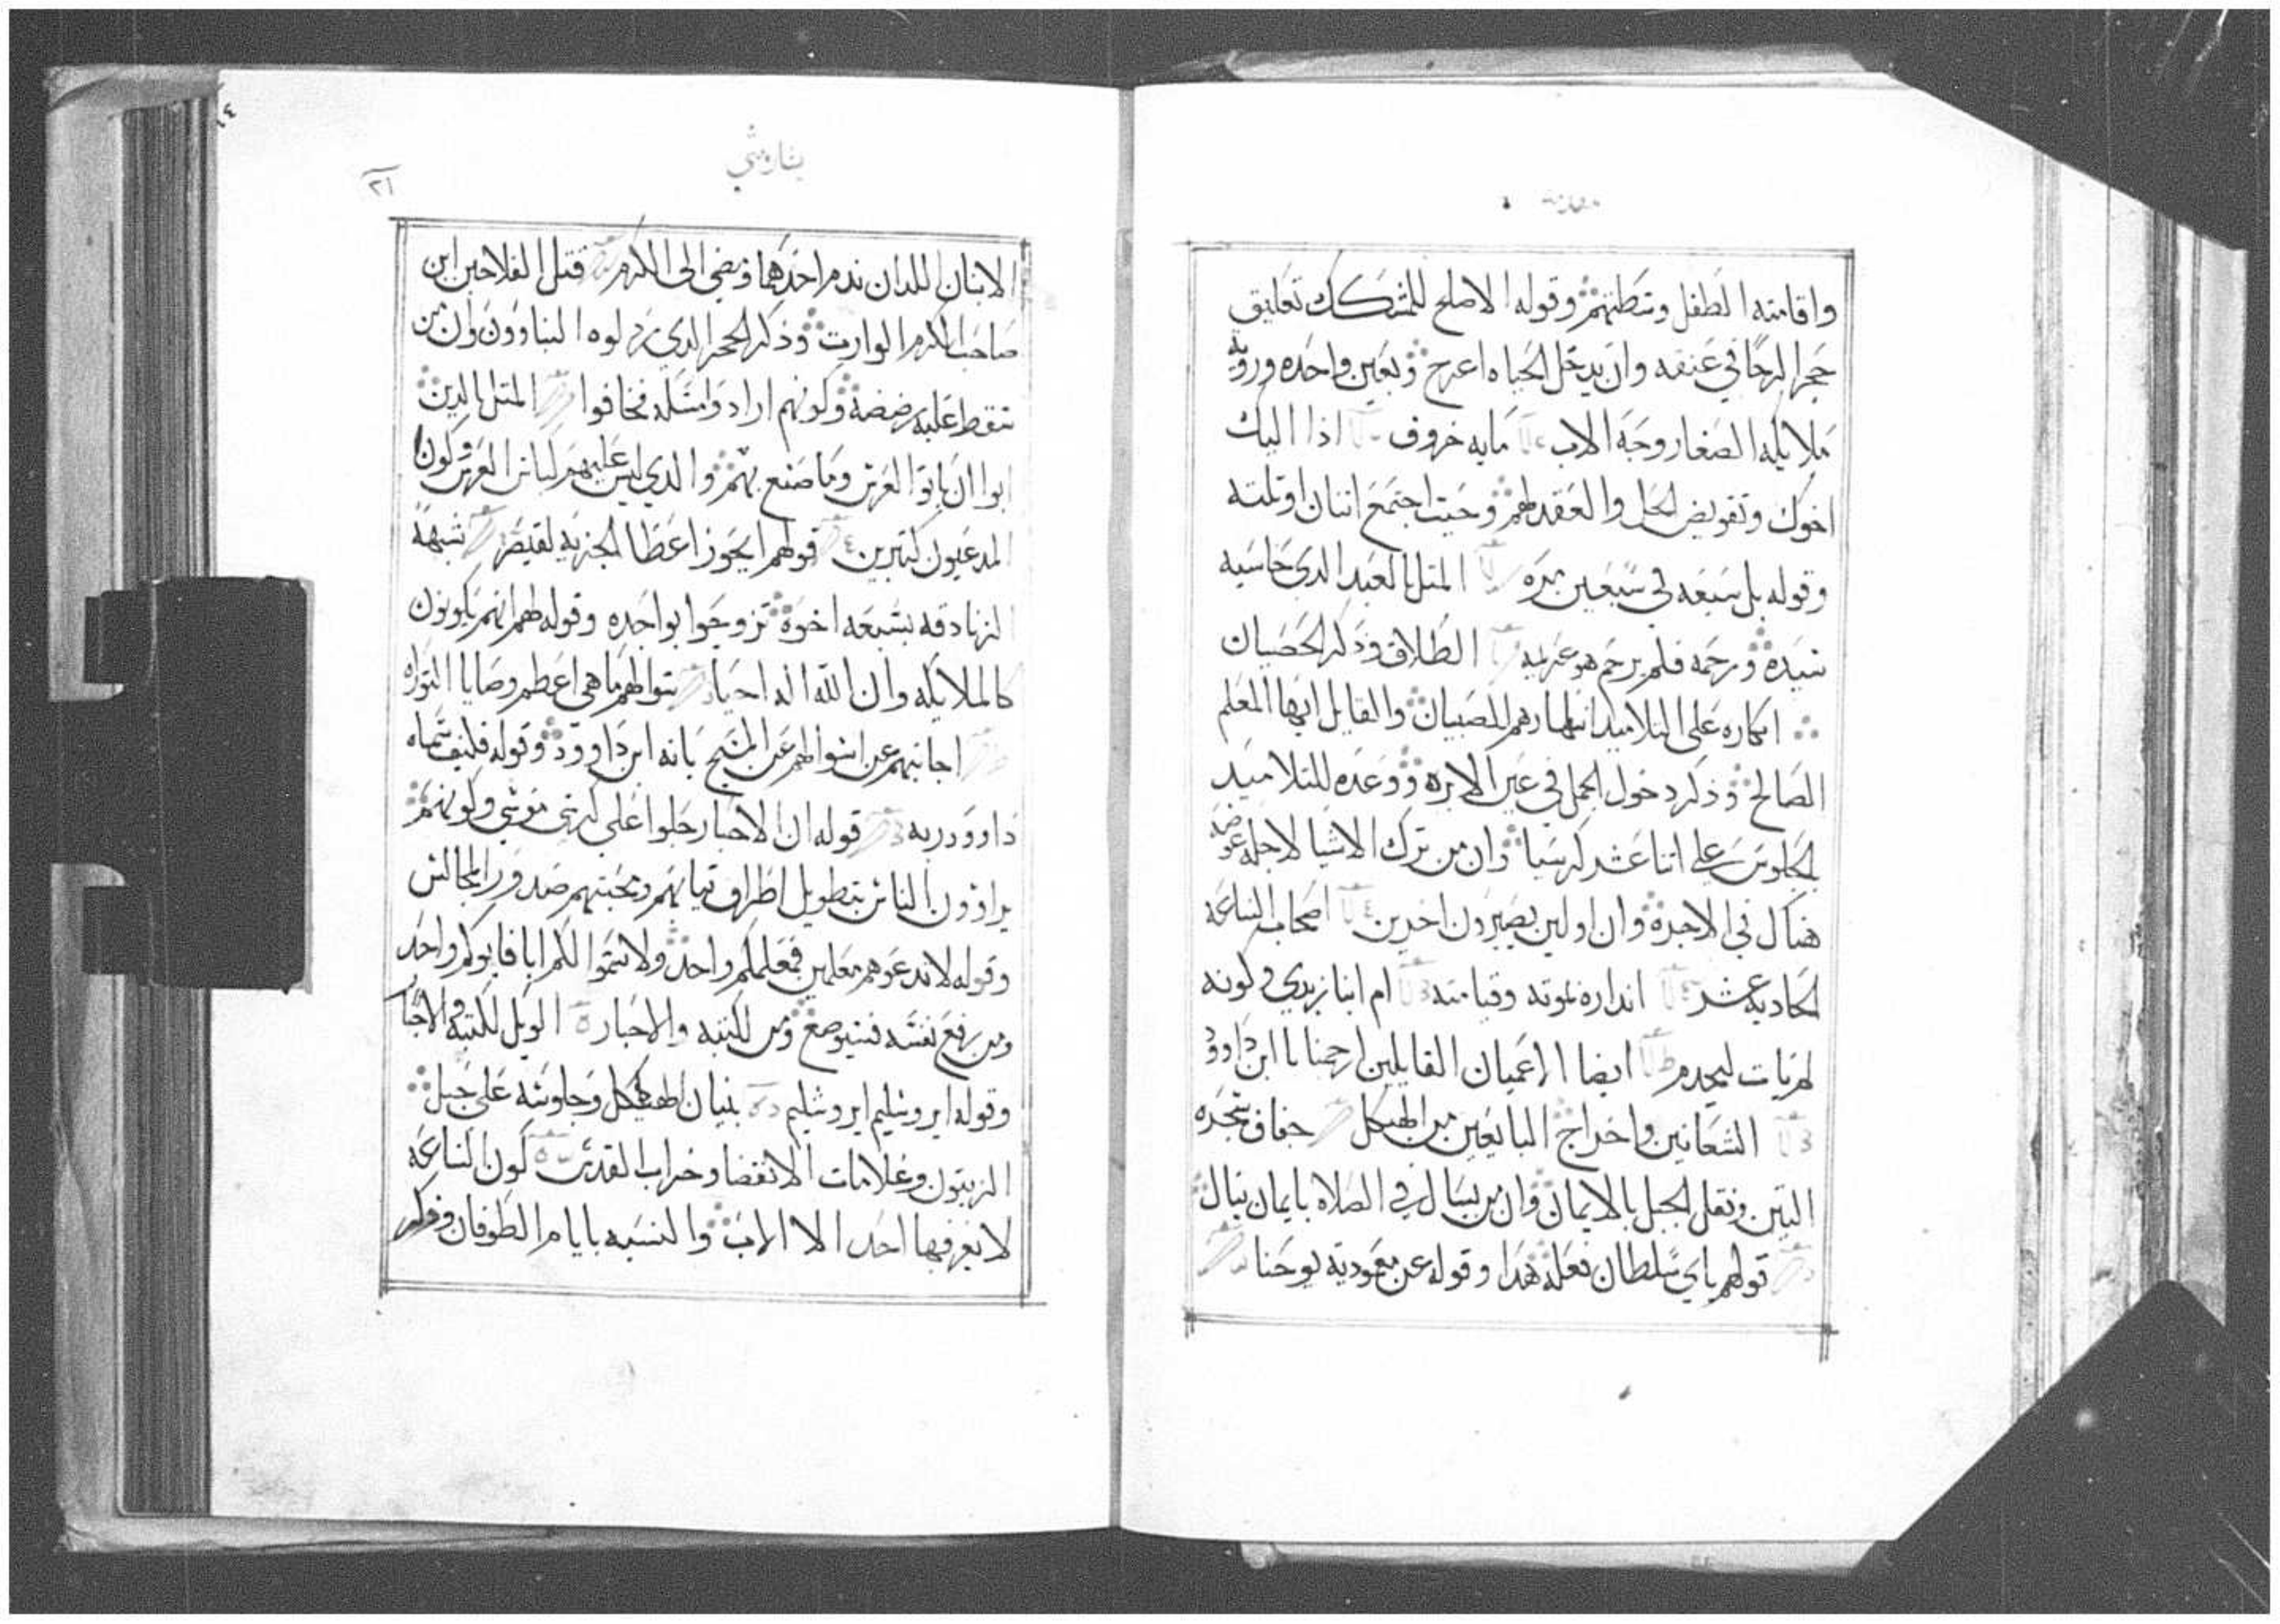 مقدمة
واقامته الطفل وسطهم وقوله الاصلح للمشكك تعليق
حجر الرحا في عنقه وان يدخل الحياه اعرج وبعين واحده وروية
ملايكه الصغار وجه الاب مايه خروف اذا اليك
اخوك وتفويض الحل والعقد لهم وحيت اجتمع اتنان او تلته
وقوله بل سبعه في سبعين مره المتل بالعبد الدي حاسبه
سيده ورحمه فلم يرحم هو غريمه الطلاق وذكر الخصيان
انكاره علي التلاميد انتهارهم للصبيان والقايل ايها المعلم
الصالح وذكر دخول الجمل في عين الابره ووعده للتلاميد
الجلوس علي اتنا عشر كرسيا وان من ترك الاشيا لاجله عوضه
هناك في الاجره وان اولين يصيرون اخرين اصحاب الساعه
الحاديه عشر انداره بموته وقيامته ام ابنا زبدي وكونه
لم يات ليخدم ايضا الاعميان القايلين ارحمنا يا ابن داوود
الشعانين واخراج البايعين من الهيكل جفاف شجره
التين ونقل الجبل بالايمان وان من يسال في الصلاه بايمان ينال
قولهم باي سلطان فعلة هدا وقوله عن معمودية يوحنا
٢١
الابنان اللدان ندم احدهما ومضي الي الكرم قتل الفلاحين ابن
صاحب الكرم الوارت وذكر الحجر الدي رذلوه البناوون وان من
سقط عليه رضضه وكونهم ارادوا مسكه فخافوا المتل بالدين
ابوا ان ياتوا العرس وما صنع بهم والدي ليس عليهم لباس العرس وكون
المدعيون كتيرين قولهم ايجوز اعطا الجزيه لقيصر شبهة
الزنادقه بسبعه اخوة تزوجوا بواحده وقوله لهم انهم يكونون
كالملايكه وان الله اله احيا سوالهم ما هي اعظم وصايا التوراه
اجابتهم عن سوالهم عن المسيح بانه ابن داوود وقوله فكيف سماه
داوود ربه قوله ان الاحبار جلوا علي كرسي موسي وكونهم
يراؤون الناس بتطويل اطراف تيابهم ومحبتهم صدور المجالس
وقوله لا تدعوهم معلمين فمعلمكم واحد ولا تسموا لكم ابا فابوكم واحد
ومن يرفع نفسه فسيوضع ومن للكتبه والاحبار الويل للكتبة والاحبار
وقوله ايروشليم ايروشليم بنيان الهيكل وجلوسه علي جبل
الزيتون وعلامات الانقضا وخراب القدس كون الساعه
لا يعرفها احد الا الاب والتشبه بايام الطوفان وذكر